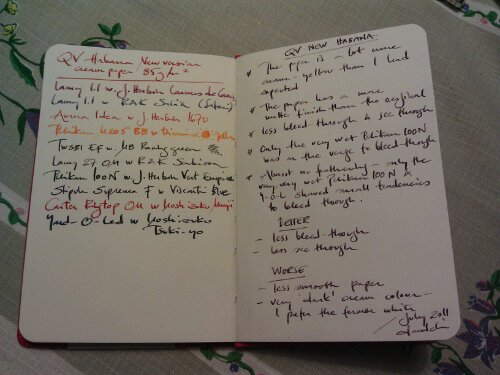 QV Habana New version
cream paper 85g/m²
Lamy 1.1 w. J. Herbin
Lamy 1.1 w R&K Salix
Aurora Idea w J. Herbin 1670
Pelikan M205 BB w Diamine
TWSBI EF w. MB Racing green
Lamy 27 OM w R&K Scabiosa
Pelikan 100N w. J. Herbin Vert Empire
Stipula Suprema F w Visconti Blue
Carter OM w Moshizuku
Yard-O-Led w Moshizuku
Tsuki-yo
QV NEW HABANA
* The paper is a lot more
cream-yellow than I had
expected
* The paper has a more
matte finish than the original
* less bleed through & see through
* Only the very wet Pelikan 100N
was on the verge to bleed through
* Almost no feathering - only the
very very wet Pelikan 100N &
Y-O-L showed small tendencies
to bleed through.
BETTER
- less bleed though
- less see though
WORSE
- less smooth paper
- very 'dark' cream colour -
I prefer the former white
/ July 2011